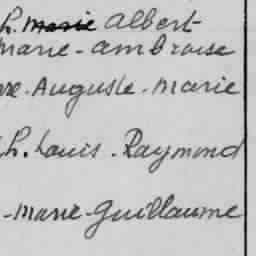 h. Marie Albert
Marie-Ambroise
re-Auguste-Marie
h. Louis-Raymond
-Marie-Guillaume